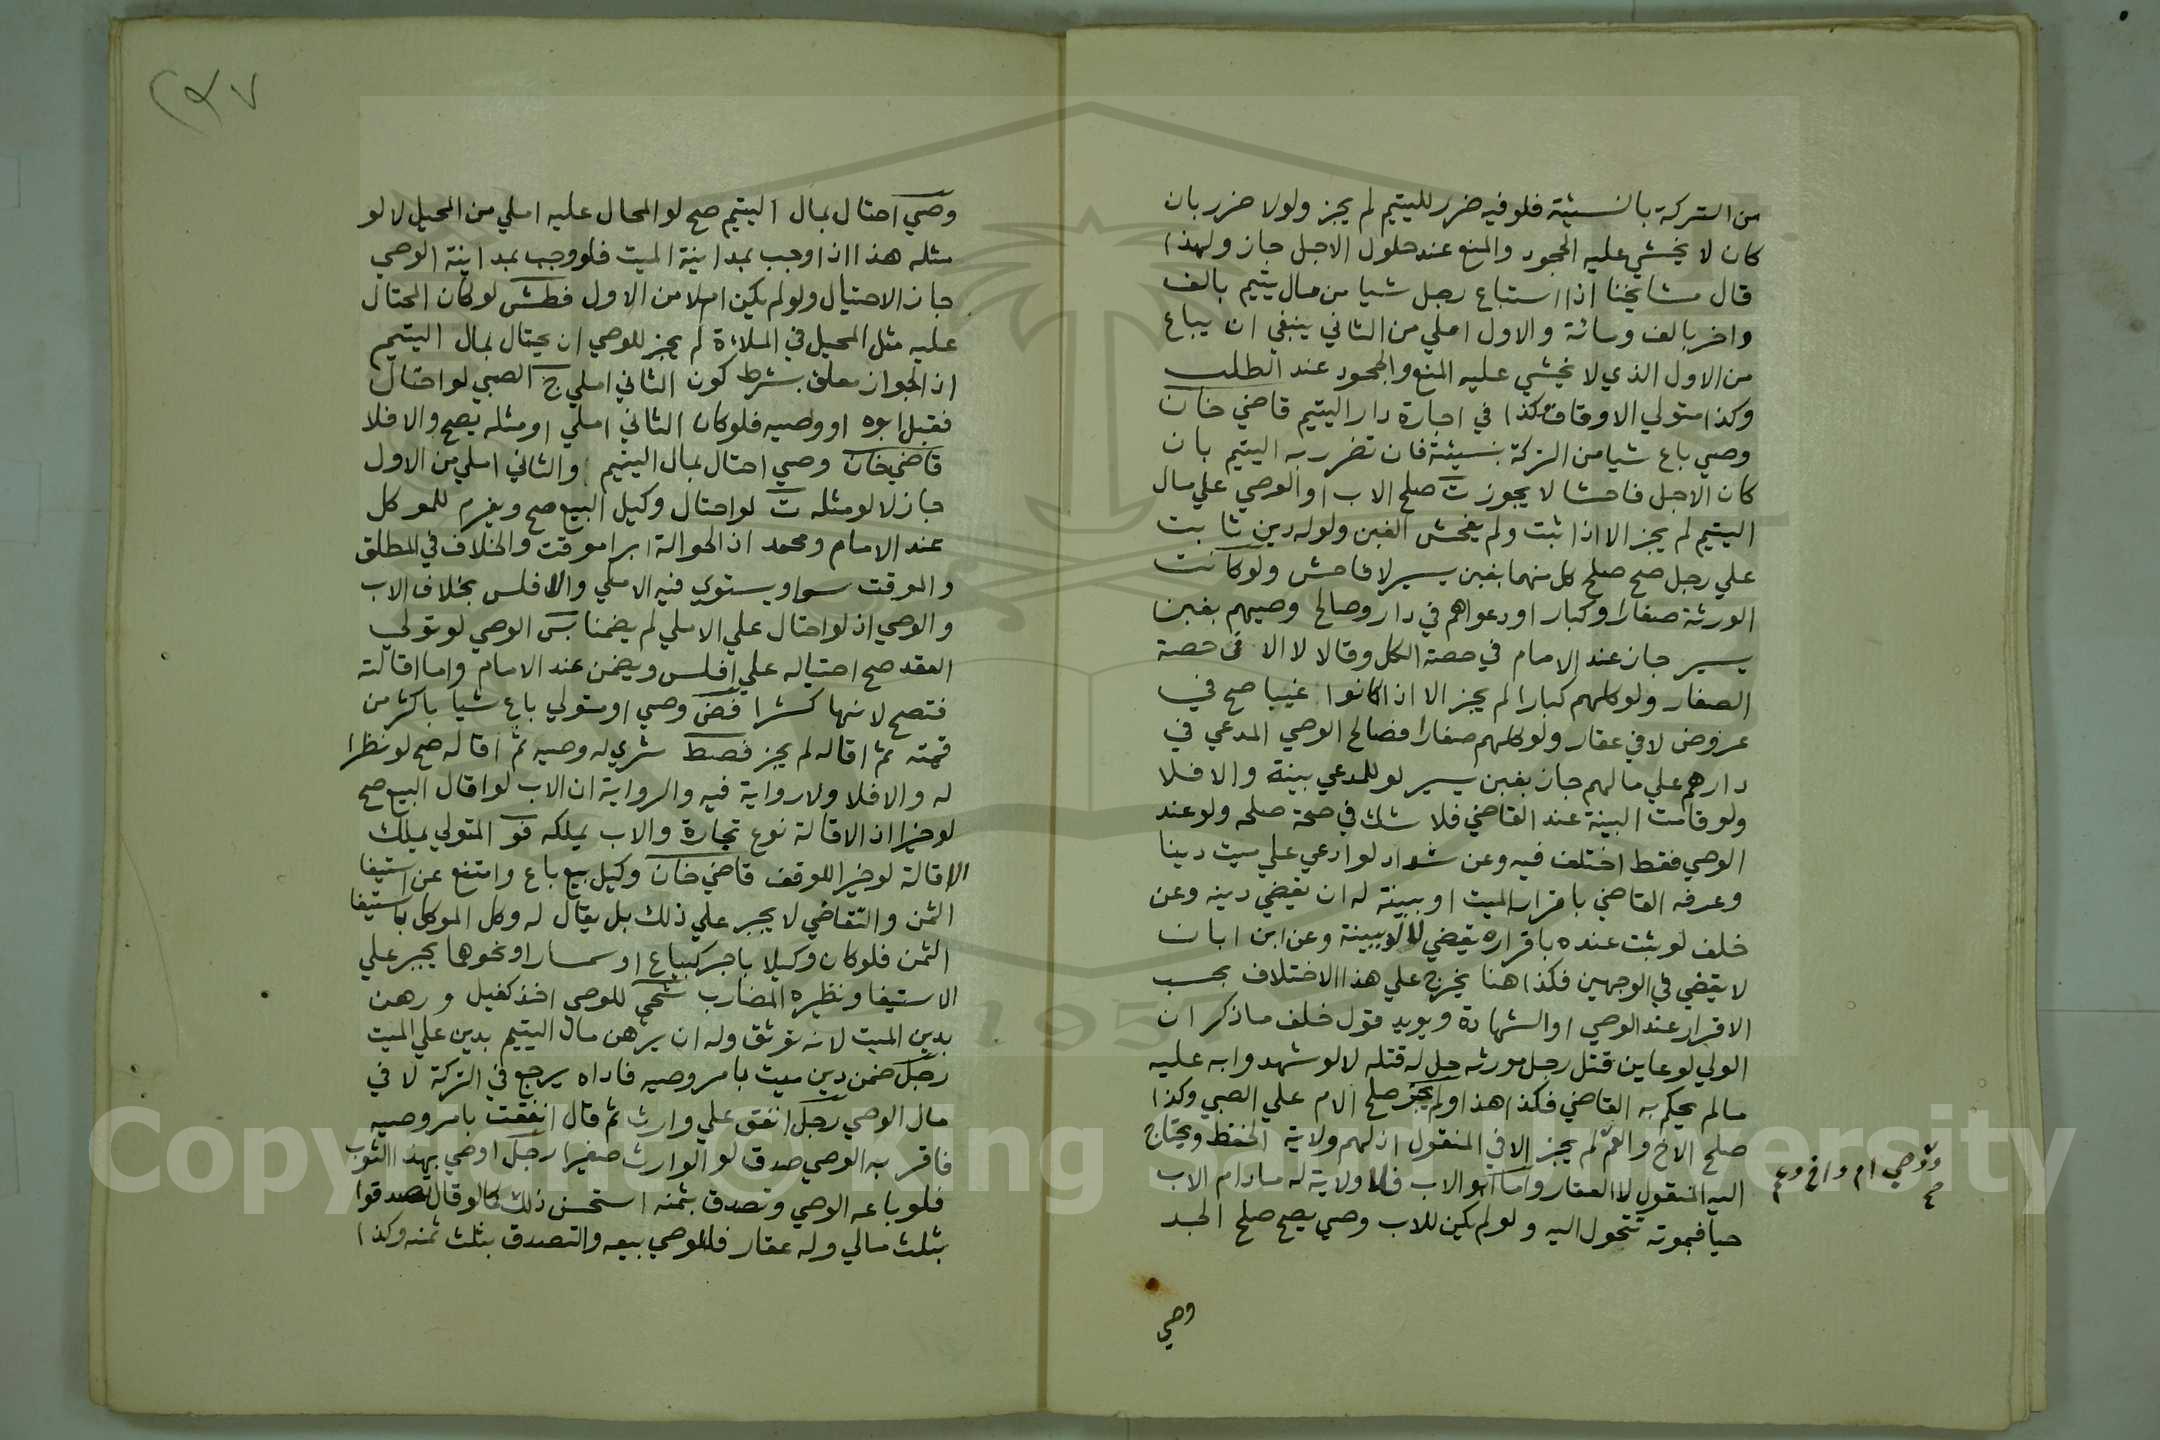 من التركة بالنسيئة فلو فيه ضرر لليتيم لم يجز ولولا ضرر بان
كان لا يخشي عليه الجحود والمنع عند حلول الاجل جاز ولهذا
قال مشايخنا اذا استباع رجل شيا من مال يتيم بالف
واخر بالف ومائة والاول املي من الثاني ينبغي ان يباع
من الاول الذي لا يخشي عليه المنع والجحود عند الطلب
وكذا متولي الاوقاف وكذا في اجارة دار اليتيم قاضي خان
وصي باع شيا من التركة بنسيئة فان تضرر به اليتيم بان
كان الاجل فاحشا لا يجوز ت صلح الاب او الوصي علي مال
اليتيم لم يجز الا اذا ثبت ولم يفحش الغبن ولو له دين ثابت
علي رجل صح صلح كل منهما بغبن يسير لا فاحش ولو كانت
الورثة صغارا وكبارا ودعواهم في دار وصالح وصيهم بغبن
يسير جاز عند الامام في حصة الكل وقالا لا الا في حصة
الصغار ولو كلهم كبارا لم يجز الا اذا كانوا غيبا صح في
عروض لا في عقار ولو كلهم صغارا فصالح الوصي المدعي في
دارهم علي مالهم جاز بغبن يسير لو للمدعي بينة والا فلا
ولو قامت البينة عند القاضي فلا شك في صحة صلحه ولو عند
الوصي فقط اختلف فيه وعن شداد لو ادعي علي ميت دينا
وعرفه القاضي باقرار الميت او ببينة له ان يقضي دينه وعن
خلف لو ثبت عنده باقراره يقضي لا لو ببينة وعن ابن ابان
لا يقضي في الوجهين فكذا هنا يخرج علي هذا الاختلاف بحسب
الاقرار عند الوصي او الشهادة ويويد قول خلف ما ذكر ان
الولي لو عاين قتل رجل مورثه حل له قتله لا لو شهدوا به عليه
ما لم يحكم به القاضي فكذا هذا ولم يجز صلح الام علي الصبي وكذا
صلح الاخ والعم لم يجز الا في المنقول اذ لهم ولاية الحفظ ويحتاج
اليه المنقول لا العقار واما ابو الاب فلا ولاية له ما دام الاب
حيا فبموته تتحول اليه ولو لم يكن للاب وصي يصح صلح الجد
ووصي ام واخ وعم
صح
وصي
٢٩٧
وصي احتال بمال اليتيم صح لو المحال عليه املي من المحيل لا لو
مثله هذا اذا وجب بمداينة الميت فلو وجب بمداينة الوصي
جاز الاحتيال ولو لم يكن املا من الاول فطش لو كان المحتال
عليه مثل المحيل في الملاءة لم يجز للوصي ان يحتال بمال اليتيم
اذ الجواز معلق بشرط كون الثاني املي ج الصبي لو احتال
فقبل ابوه او وصيه فلو كان الثاني املي او مثله يصح والا فلا
قاضي خان وصي احتال بمال اليتيم والثاني املي من الاول
جاز لا لو مثله ت لو احتال وكيل البيع صح ويغرم للموكل
عند الامام ومحمد اذ الحوالة ابرا موقت والخلاف في المطلق
والموقت سوا ويستوي فيه الاملي والافلس بخلاف الاب
والوصي اذ لو احتال علي الاملي لم يضمنا بس الوصي لو تولي
العقد صح احتياله علي افلس ويضمن عند الامام واما اقالته
فتصح لانها كشرا فض وصي او متولي باع شيا باكثر من
قيمته ثم اقاله لم يجز فصط شري له وصيه ثم اقاله صح لو نظرا
له والا فلا ولا رواية فيه والرواية ان الاب لو اقال البيع صح
لو خيرا اذ الاقالة نوع تجارة والاب يملكه فو المتولي يملك
الاقالة لو خيرا للوقف قاضي خان وكيل بيع باع وامتنع عن استيفا
الثمن والتقاضي لا يجبر علي ذلك بل يقال له وكل الموكل باستيفا
الثمن فلو كان وكيلا باجر كبياع او سمسار او نحوها يجبر علي
الاستيفا ونظيره المضارب شحي للوصي اخذ كفيل ورهن
بدين الميت لانه توثق وله ان يرهن مال اليتيم بدين علي الميت
رجل ضمن دين ميت بامر وصيه فاداه يرجع في التركة لا في
مال الوصي رجل انفق علي وارث ثم قال انفقت بامر وصيه
فاقر به الوصي صدق لو الوارث صغيرا رجل اوصي بهذا الثوب
فلو باعه الوصي وتصدق بثمنه استحسن ذلك كما لو قال تصدقوا
بثلث مالي وله عقار فللوصي بيعه والتصدق بثلث ثمنه وكذا
Copyright © King Saud University
1957